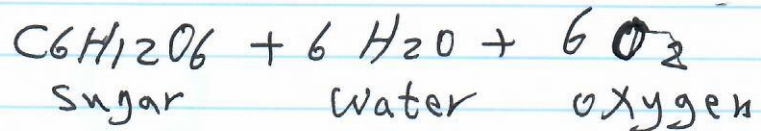 C6H12O6 + 6 H2O + 6 O2
Sugar water oxygen